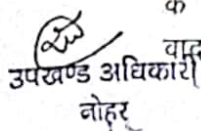 क
वाद
उपखण्ड अधिकारी
नोहर